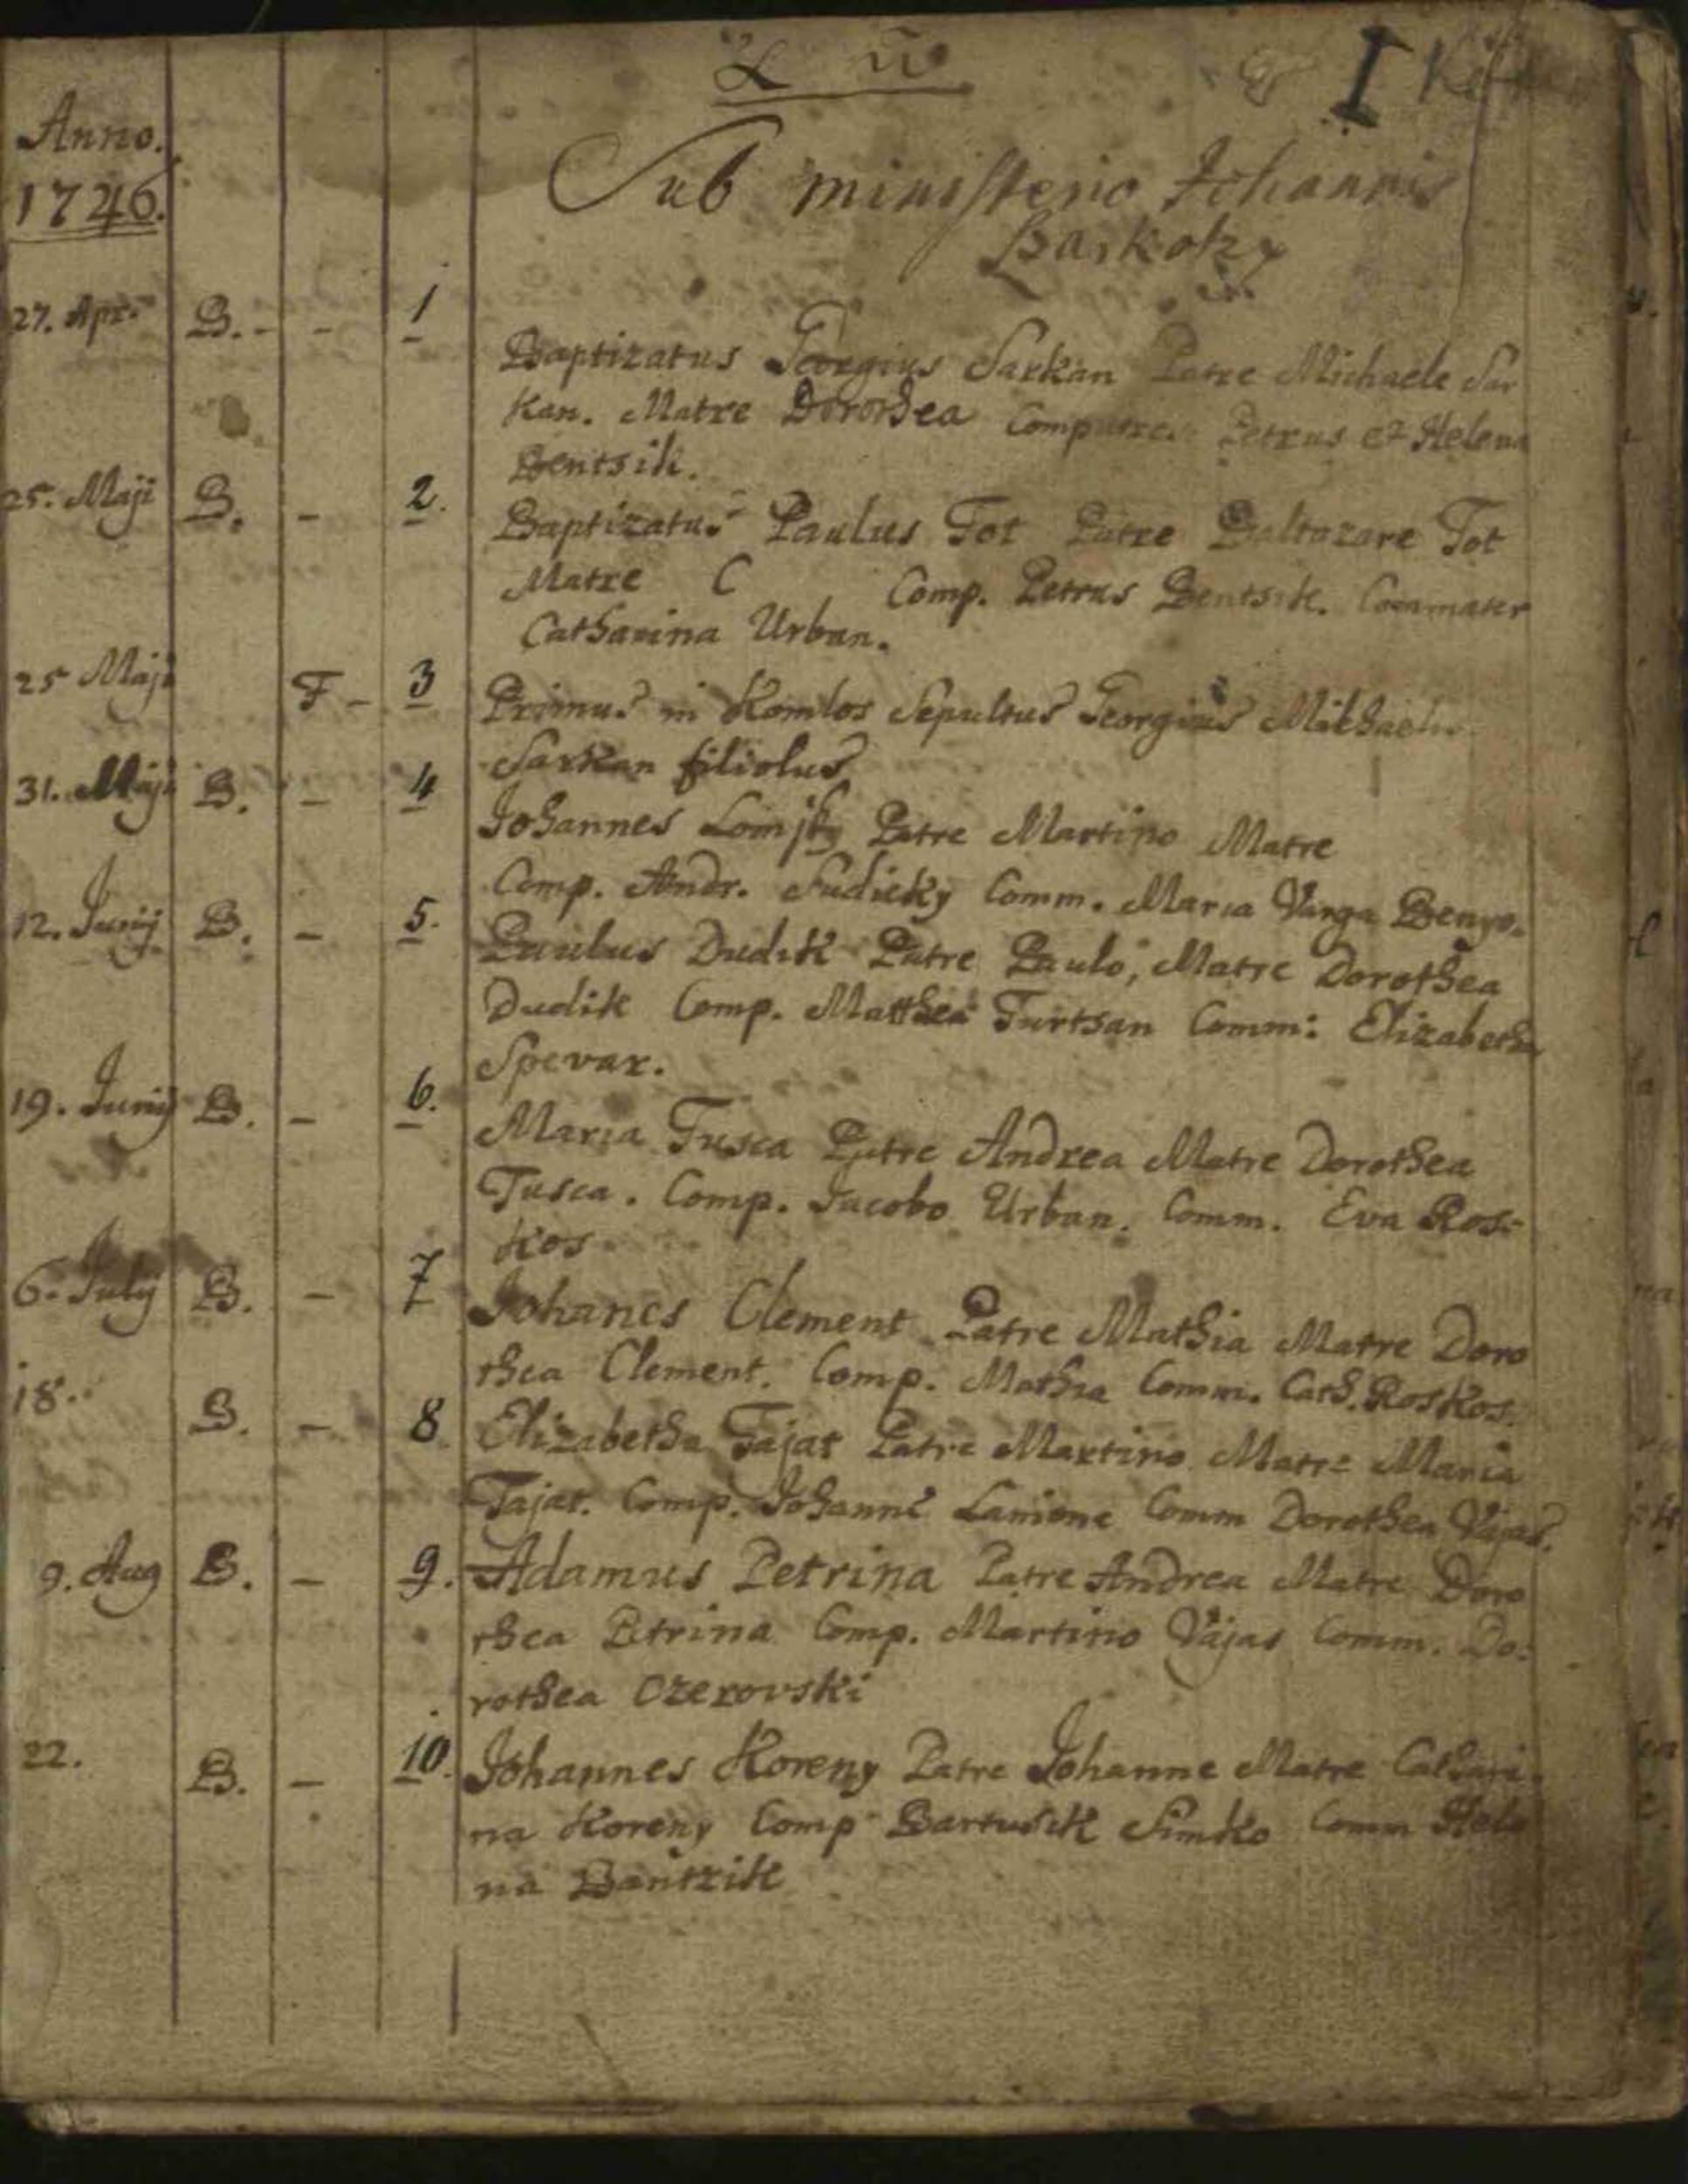 I
Anno.
1746.
Sub ministerio Johannis
Barkotzy
27. Apr. B. - - 1
Baptizatus Georgius Sarkan Patre Michaele Sar
kan. Matre Dorothea Compatre. Petrus et Helena
Bentsik.
25. Maji B. - 2.
Baptizatus Paulus Tot Patre Baltazare Tot
Matre C Comp. Petrus Bentsik. Commater
Catharina Urban.
25 Maji F - 3
Primus in Komlos Sepultus Georgius Mikhaelis
Sarkan filiolus
31. Maji B. - 4
Johannes Lomsky Patre Martino Matre
Comp. Andr. Sudicky Comm. Maria Varga Benyo.
12. Junij B. - 5.
Paulus Dudik Patre Paulo, Matre Dorothea
Dudik Comp. Matthea Turtsan Comm: Elizabetha
Spevar.
19. Junij B. - 6.
Maria Tusca Patre Andrea Matre Dorothea
Tusca. Comp. Jacobo Urban. Comm. Eva Ros-
kos
6. Julij B. - 7
Johanes Clement Patre Mathia Matre Doro
thea Clement. Comp. Mathia Comm. Cath. Roskos.
18. B. - 8
Elizabetha Tajat Patre Martino Matre Maria
Tajat. Comp. Johanne Lanione Comm Dorothea Vajas.
9. Aug B. - 9.
Adamus Petrina Patre Andrea Matre Doro
thea Petrina Comp. Martino Vajas Comm. Do:
rothea Ozerovski
22. B. - 10.
Johannes Koreny Patre Johanne Matre Cathari-
na Koreny Comp Bartusik Simko Comm Hele
na Bantzik